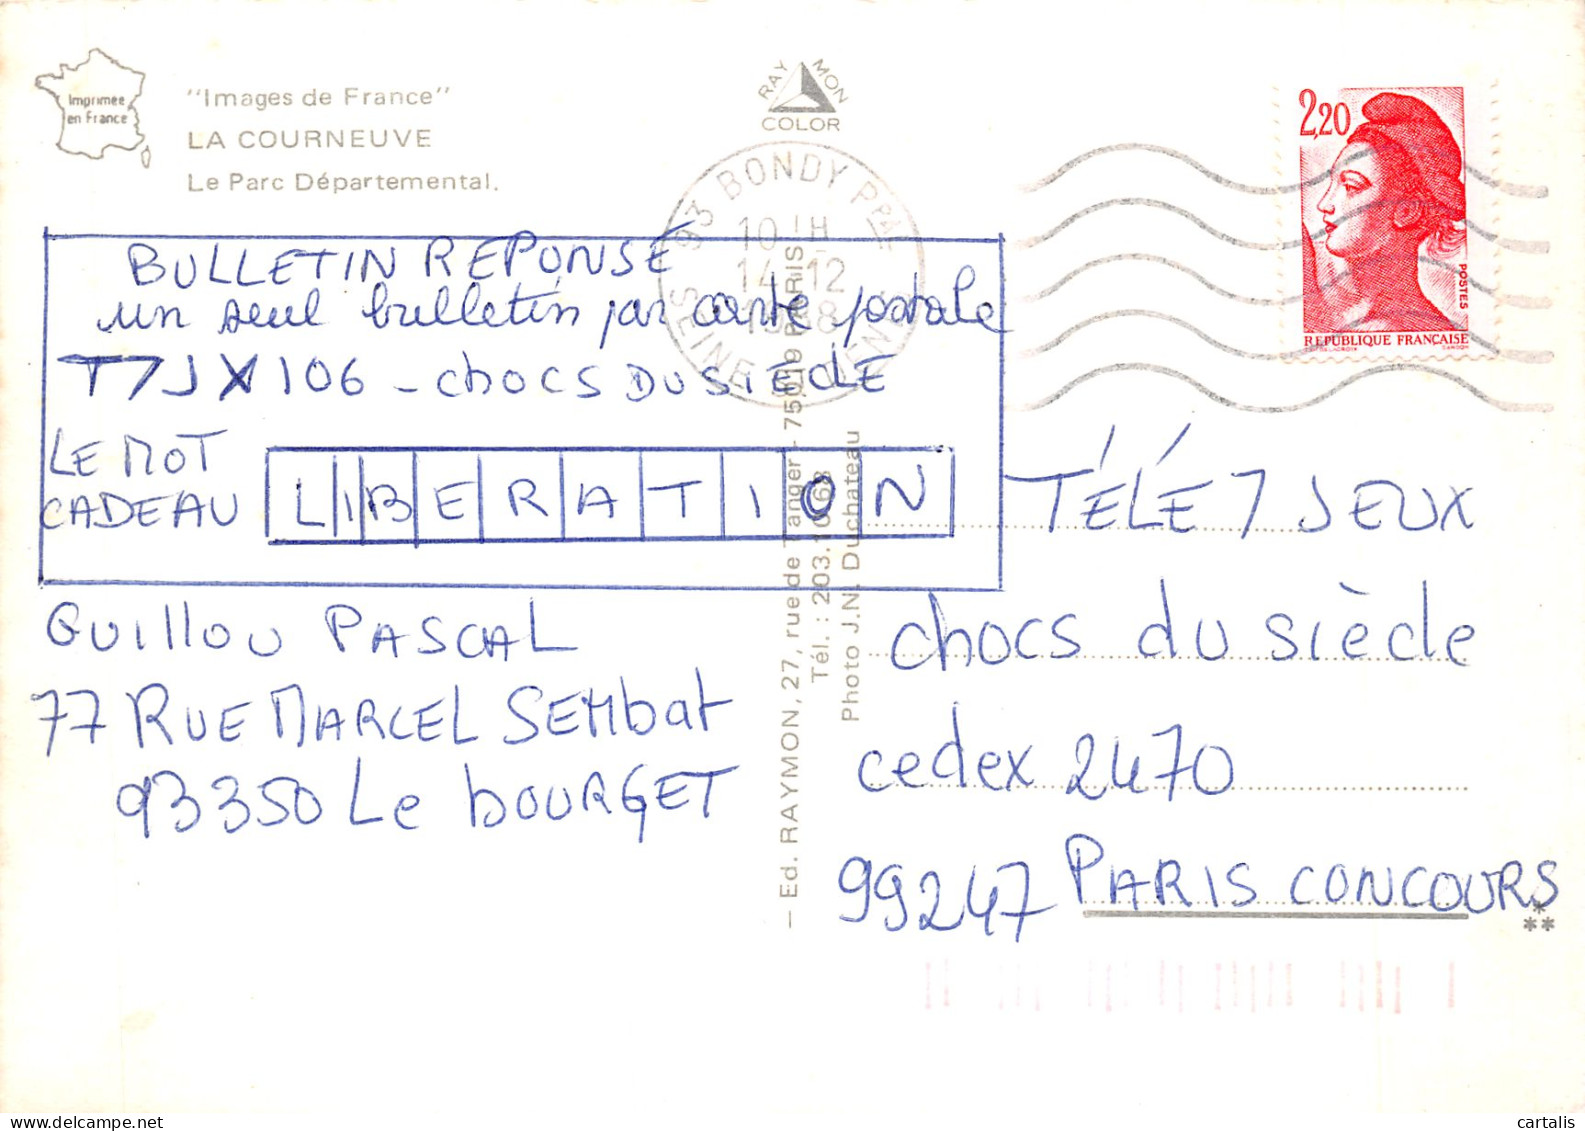 Imprimée
en France
"Images de France"
LA COURNEUVE
Le Parc Départemental.
RAY MON
COLOR
93 BONDY PPAL
10 H
14-12
SEINE
2,20
POSTES
REPUBLIQUE FRANÇAISE
BULLETIN REPONSE
un seul bulletin par carte postale
T7JX106 - CHOCS DU SIECLE
LE MOT
CADEAU
LIBERATION
GUILLOU PASCAL
77 RUE MARCEL SEMBAT
93350 Le BOURGET
— Ed. RAYMON, 27, rue de Tanger - 75019 PARIS
Photo J.N. Duchateau
TÉLÉ 7 JEUX
CHOCS du siècle
cedex 2470
99247 PARIS CONCOURS
***
cartalis